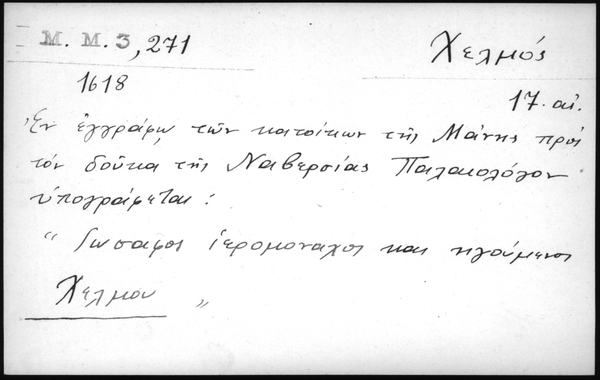 Μ. Μ. 3, 271
Χελμός
1618
17. αἰ.
Ἐν ἐγγράφῳ τῶν κατοίκων τῆς Μάνης πρὸς
τὸν δοῦκα τῆς Ναβερσίας Παλαιολόγον
ὑπογράφεται :
" Ἰωσαφος ἱερομοναχος και ηγούμενος
Χελμου "